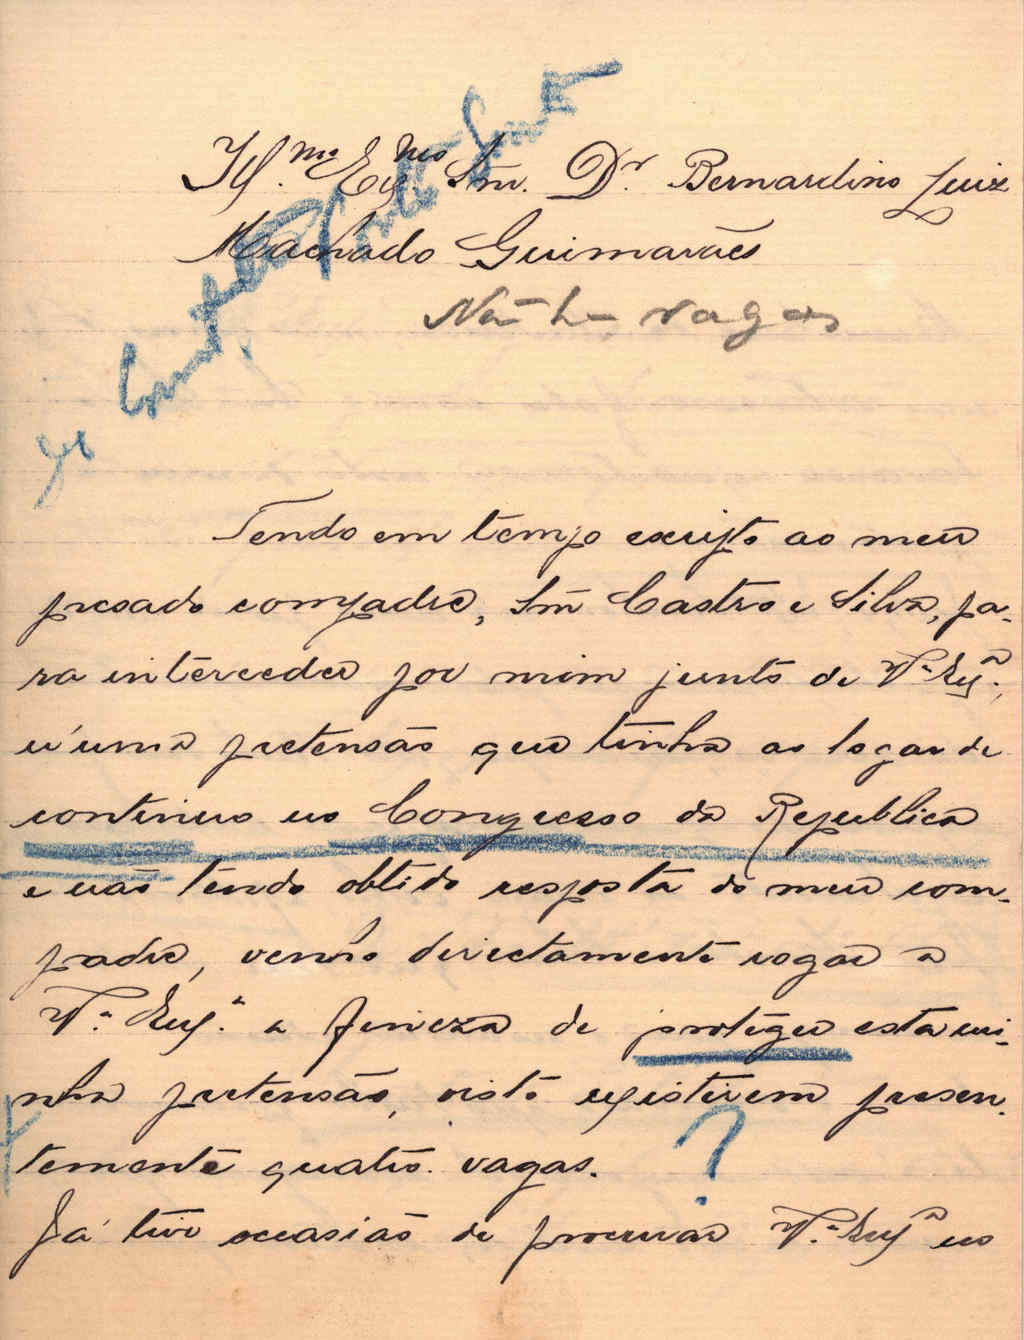 Ill.mo Ex.mo Snr. Dr. Bernardino Luiz
Machado Guimarães
Não ha vagas
Tendo em tempo escripto ao meu
presado compadre, Snr Castro e Silva, pa-
ra interceder por mim junto de V.a Ex.a,
n'uma pretensão que tinha ao logar de
continuo no Congresso da Republica
e não tendo obtido resposta do meu com-
padre, venho directamente rogar a
V.a Ex.a a fineza de proteger esta mi-
nha pretensão, visto existirem presen-
temente quatro vagas.
?
Já tive occasião de procurar V.a Ex.a no